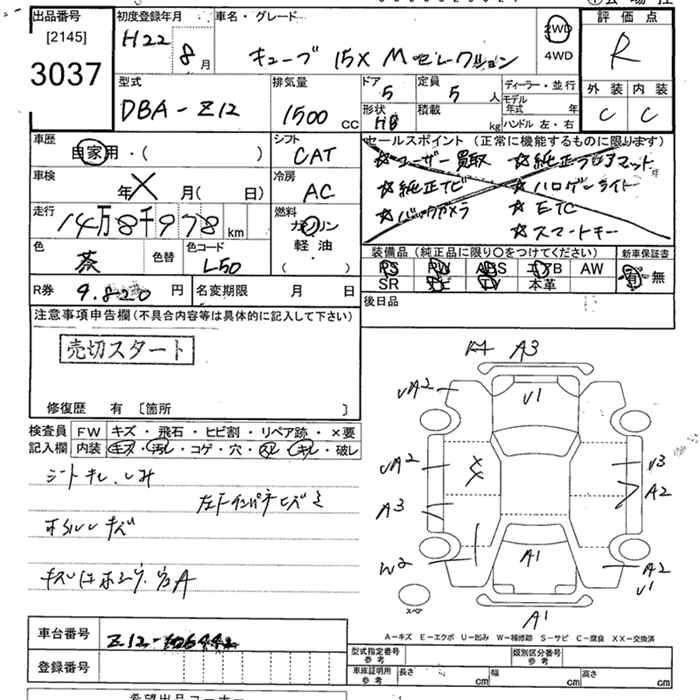 出品番号 初度登録年月 車名・グレード 評価点
[2145] H22 8月 キューブ 15X Mセレクション 2WD 4WD R
3037
型式 排気量 ドア 定員 ディーラー・並行 外装 内装
DBA-Z12 1500 CC 5 5 人 モデル年式 年 C C
形状 HB 積載 kg ハンドル 左・右
車歴 自家用・( ) シフト CAT セールスポイント (正常に機能するものに限ります)
☆ユーザー買取 ☆純正フロアマット
車検 年 月( 日) 冷房 AC ☆純正ナビ ☆ハロゲンライト
走行 14万8千978 km 燃料 ガソリン ☆バックカメラ ☆ETC
軽油 ( ) ☆スマートキー
色 茶 色替 色コード L50
装備品 (純正品に限り○をつけてください) 新車保証書
PS PW ABS エアB AW 有・無
SR ナビ TV 本革
R券 9.820 円 名変期限 月 日 後日品
注意事項申告欄(不具合内容等は具体的に記入して下さい)
売切スタート
修復歴 有 [箇所 ]
検査員 FW キズ・飛石・ヒビ割・リペア跡・×要
記入欄 内装 キズ・汚レ・コゲ・穴・スレ・キレ・破レ
シートキレ、しみ
キズ
A3
UA2 U1
UA2 U3
A3 A2
W2 A1 A2
U1
スペア
A1
A-キズ E-エクボ U-凹み W-補修跡 S-サビ C-腐食 XX-交換済
車台番号 Z12-
登録番号
型式指定番号 参考 類別区分番号 参考
車庫証明用 参考 長さ cm 幅 cm 高さ cm
希望出品コーナー